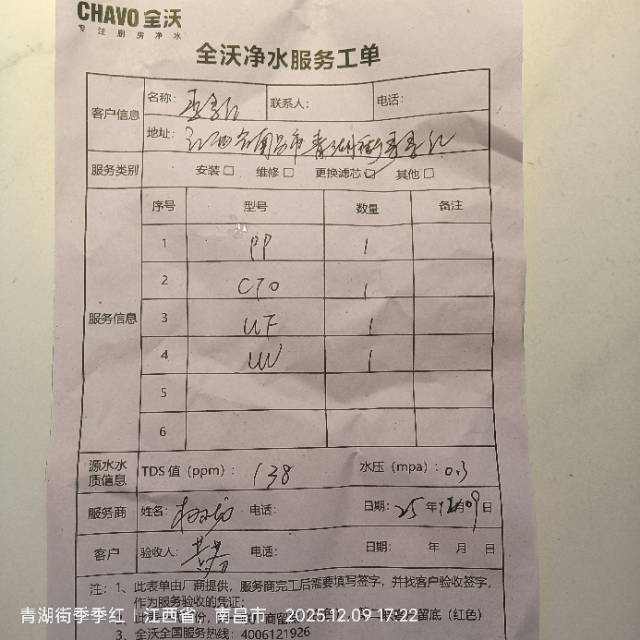 CHAVO 全沃
专注厨房净水
全沃净水服务工单
客户信息
名称: 季季红 联系人: 电话:
地址: 江西省南昌市青湖街季季红
服务类别 安装 维修 更换滤芯 其他
服务信息
序号 型号 数量 备注
1 PP 1
2 CTO 1
3 UF 1
4 UV 1
5
6
源水水质信息 TDS 值 (ppm): 138 水压 (mpa): 0.3
服务商 姓名: 电话: 日期: 25 年 12 月 09 日
客户 验收人: 电话: 日期: 年 月 日
注: 1、此表单由厂商提供, 服务商完工后需要填写签字, 并找客户验收签字,
作为服务验收的凭证;
留底 (红色)
3、全沃全国服务热线: 4006121926
青湖街季季红 江西省, 南昌市 2025.12.09 17:22